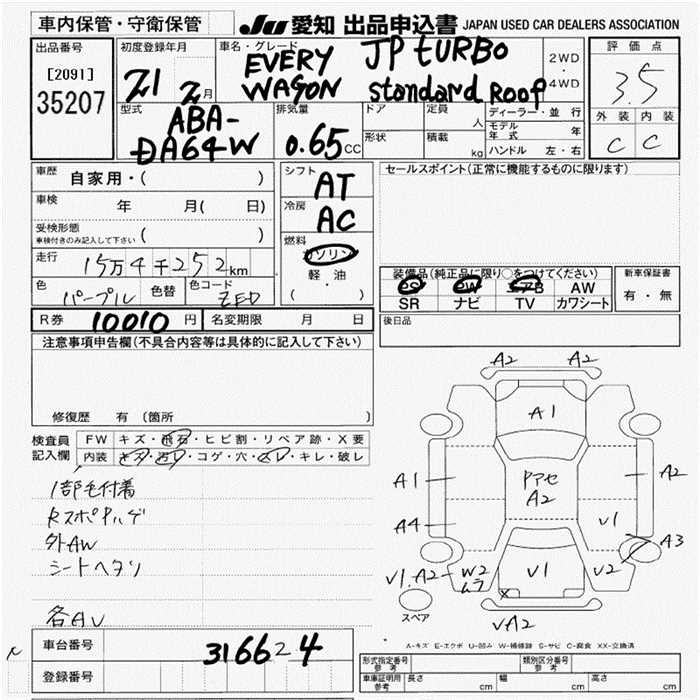 車内保管・守衛保管
JU 愛知 出品申込書 JAPAN USED CAR DEALERS ASSOCIATION
出品番号
[2091]
35207
初度登録年月
21 2月
車名・グレード
EVERY JP tURBO
WAGON standard Roof
2WD
・
4WD
評価点
3.5
外装 内装
C C
型式
ABA-
DA64W
排気量
0.65CC
ドア
定員
人
形状
積載
kg
ディーラー・並行
モデル年式 年
ハンドル 左・右
車歴
自家用・( )
車検
年 月( 日)
受検形態
車検付きのみ記入して下さい ( )
走行
15万4千252km
色
パープル
色替
色コード
ZED
シフト
AT
冷房
AC
燃料
ガソリン
軽・油
( )
セールスポイント(正常に機能するものに限ります)
装備品(純正品に限り○をつけてください)
PS PW エアB AW
SR ナビ TV カワシート
新車保証書
有・無
R券 10010円
名変期限 月 日
後日品
注意事項申告欄(不具合内容等は具体的に記入して下さい)
修復歴 有 (箇所 )
検査員
記入欄
FW キズ・飛石・ヒビ割・リペア跡・X要
内装 キズ・汚レ・コゲ・穴・スレ・キレ・破レ
1部毛付着
外AW
シートヘタリ
A2 A2
A1
A1
A2
A2
A4
V1
A3
V1.A2
W2
ムラ
V1
U2
スペア
VA2
A-キズ E-エクボ U-凹み W-補修跡 S-サビ C-腐食 XX-交換済
車台番号
316624
登録番号
形式指定番号
参考
類別区分番号
参考
車庫証明用
参考
長さ cm
幅 cm
高さ cm